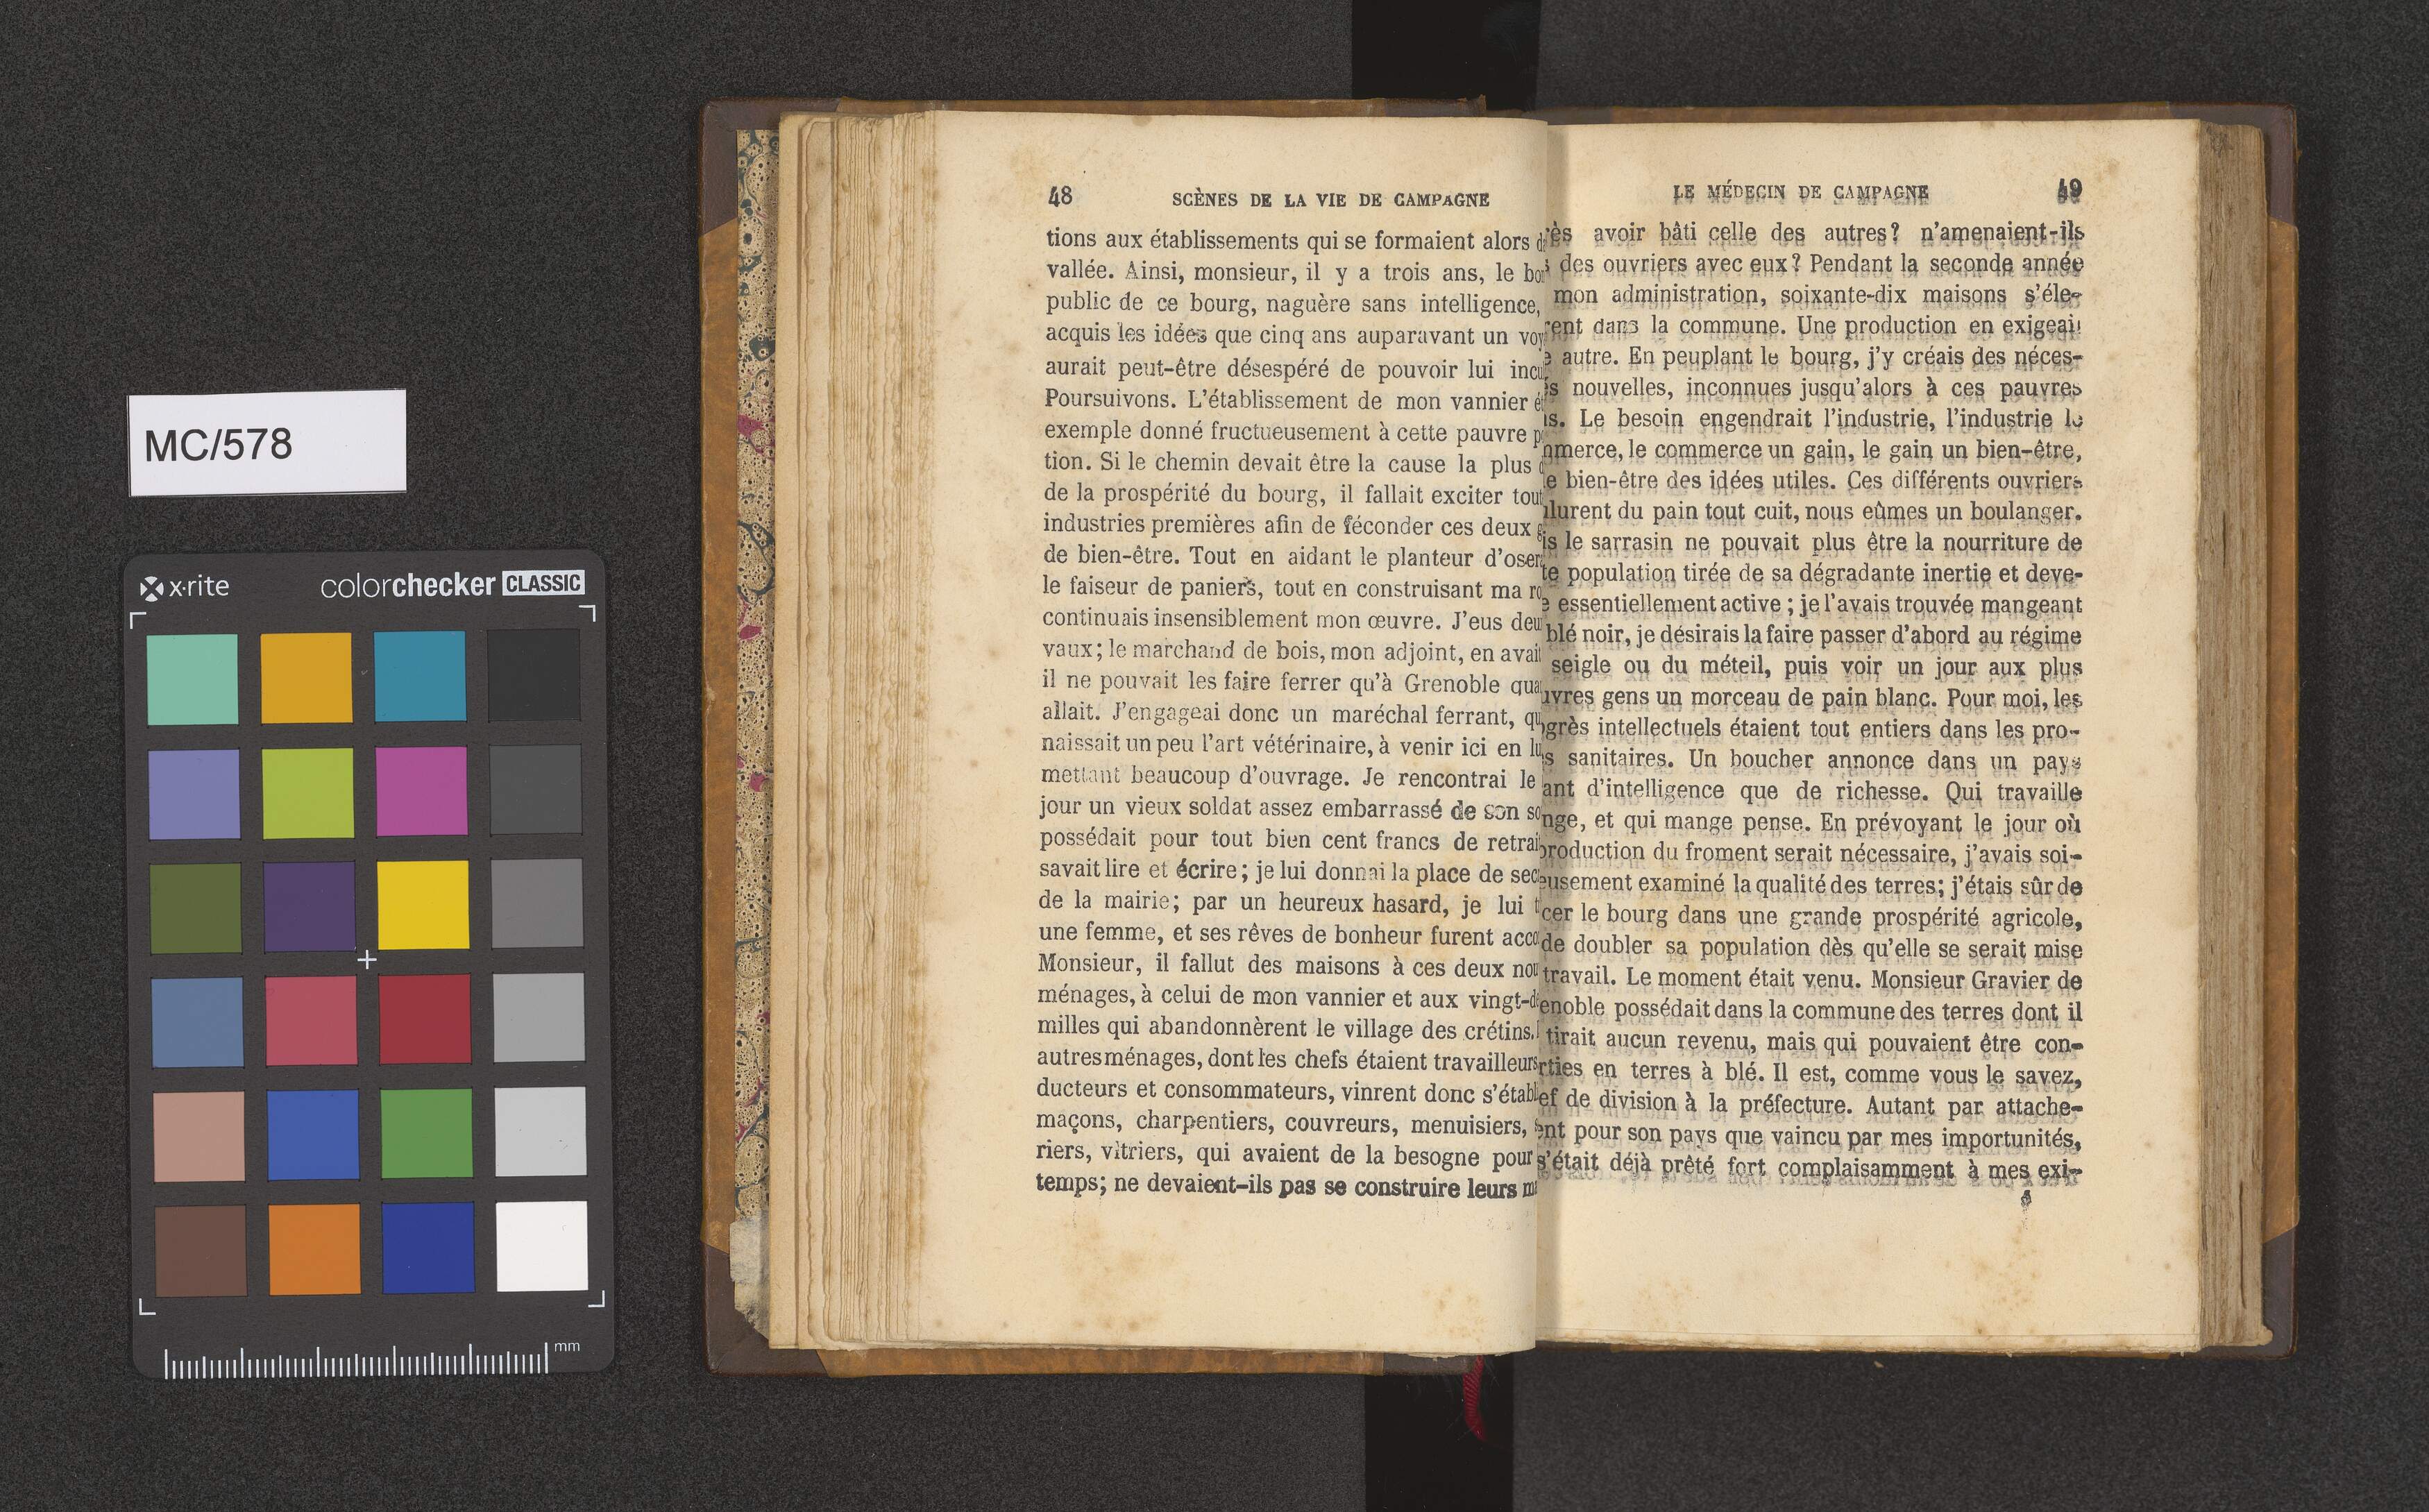 MC/578
x·rite
colorchecker CLASSIC
mm
48
SCÈNES DE LA VIE DE CAMPAGNE
tions aux établissements qui se formaient alors
vallée. Ainsi, monsieur, il y a trois ans, le
public de ce bourg, naguère sans intelligence,
acquis les idées que cinq ans auparavant un
aurait peut-être désespéré de pouvoir lui
Poursuivons. L'établissement de mon vannier
exemple donné fructueusement à cette pauvre
tion. Si le chemin devait être la cause la plus
de la prospérité du bourg, il fallait exciter
industries premières afin de féconder ces deux
de bien-être. Tout en aidant le planteur
le faiseur de paniers, tout en construisant ma
continuais insensiblement mon œuvre. J'eus
vaux; le marchand de bois, mon adjoint, en
il ne pouvait les faire ferrer qu'à Grenoble
allait. J'engageai donc un maréchal ferrant,
naissait un peu l'art vétérinaire, à venir ici en
mettant beaucoup d'ouvrage. Je rencontrai le
jour un vieux soldat assez embarrassé de son
possédait pour tout bien cent francs de
savait lire et écrire; je lui donnai la place de
de la mairie; par un heureux hasard, je lui
une femme, et ses rêves de bonheur furent
Monsieur, il fallut des maisons à ces deux
ménages, à celui de mon vannier et aux
milles qui abandonnèrent le village des crétins.
autres ménages, dont les chefs étaient travailleurs
ducteurs et consommateurs, vinrent donc
maçons, charpentiers, couvreurs, menuisiers,
riers, vitriers, qui avaient de la besogne pour
temps; ne devaient-ils pas se construire leurs
LE MÉDECIN DE CAMPAGNE
49
avoir bâti celle des autres? n'amenaient-ils
des ouvriers avec eux? Pendant la seconde année
mon administration, soixante-dix maisons s'éle-
dans la commune. Une production en exigeait
autre. En peuplant le bourg, j'y créais des néces-
nouvelles, inconnues jusqu'alors à ces pauvres
Le besoin engendrait l'industrie, l'industrie le
le commerce un gain, le gain un bien-être,
bien-être des idées utiles. Ces différents ouvriers
du pain tout cuit, nous eûmes un boulanger.
le sarrasin ne pouvait plus être la nourriture de
population tirée de sa dégradante inertie et deve-
essentiellement active; je l'avais trouvée mangeant
blé noir, je désirais la faire passer d'abord au régime
seigle ou du méteil, puis voir un jour aux plus
gens un morceau de pain blanc. Pour moi, les
intellectuels étaient tout entiers dans les pro-
sanitaires. Un boucher annonce dans un pays
d'intelligence que de richesse. Qui travaille
et qui mange pense. En prévoyant le jour où
production du froment serait nécessaire, j'avais soi-
examiné la qualité des terres; j'étais sûr de
le bourg dans une grande prospérité agricole,
de doubler sa population dès qu'elle se serait mise
travail. Le moment était venu. Monsieur Gravier de
possédait dans la commune des terres dont il
tirait aucun revenu, mais qui pouvaient être con-
en terres à blé. Il est, comme vous le savez,
de division à la préfecture. Autant par attache-
pour son pays que vaincu par mes importunités,
s'était déjà prêté fort complaisamment à mes exi-